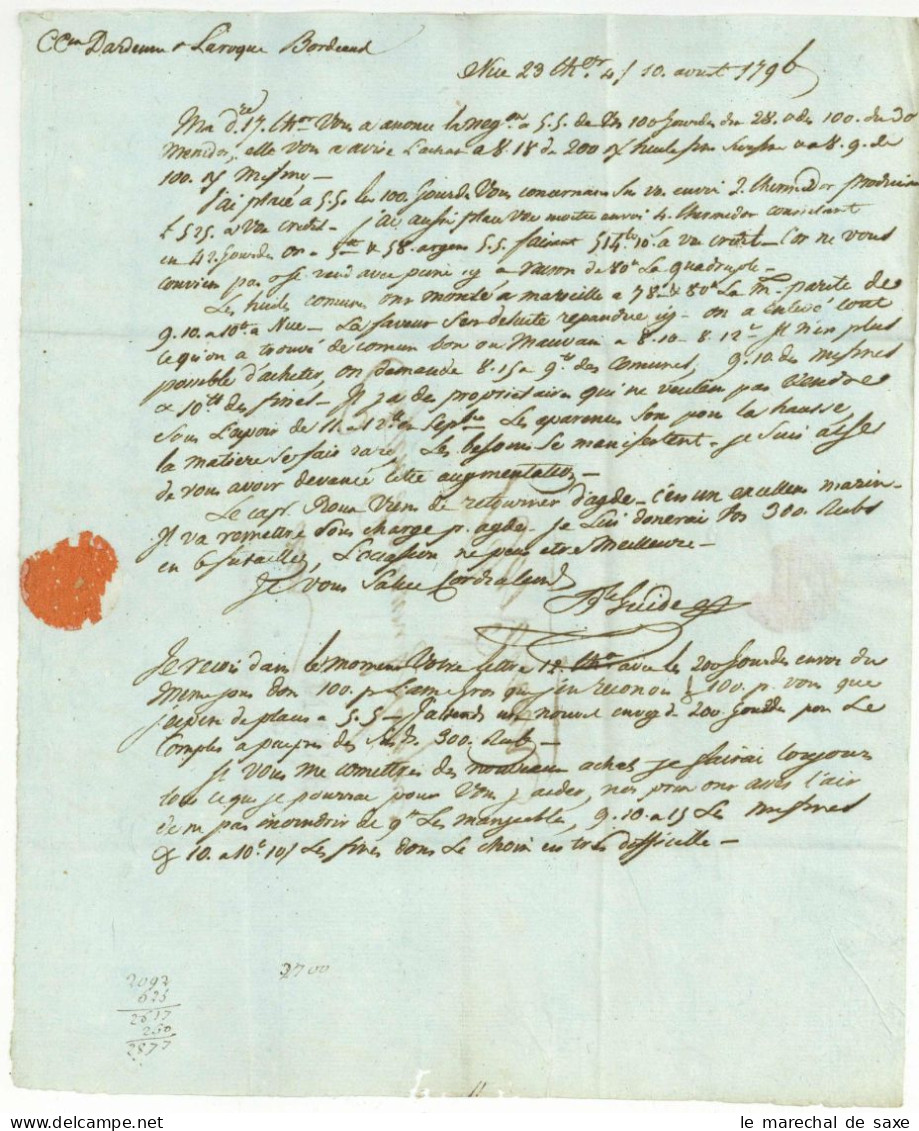 CCen Dardenne & Laroque Bordeaux
Nice 23 Ther 4/ 10. aoust 1796
Ma d're 17. Ther Vous a anoncé la neg.on a 5.5. de 100 Gourdes du 28. & des 100. du do
Messidor, elle vous a avisé l'achat a 8.18 de 200 huile fine a 8. 9. de
100. Mifine —
J'ai placé a 5.5. les 100. Gourdes Vous concernant envoi 2. Thermidor produisant
₶ 525. a Vre credit — j'ai aussi placé Vre envoi 4. Thermidor consistant
en 42 Gourdes or & 58. argent 5.5. faisant 514.10. a vre credit — L'or ne vous
convient pas se vend avec peine icy a raison de 80 La quadruple —
Les huiles comunes ont monté a marseille a 78 & 80 La m. parité de
9.10. a 10 a Nice — La faveur s'en deluite repandue icy — on a enlevé tout
ce qu'on a trouvé de comun bon ou Mauvais a 8.10 - 8.12 — Il n'en plus
possible d'acheter, on demande 8.15 a 9 des Comunes, 9.10 des mifines
& 10 des fines — Il y a des proprietaires qui ne veulent pas Vendre
Sous L'apoir de 11 a 12 en Septbre — Les aparences sont pour la hausse,
la matiere se fait rare, Les besoins se manifestent — je suis aise
de vous avoir devancé cette augmentation —
Le cap. Roux Vient de retourner d'agde — c'est un excellent marin —
Il va remettre sous charge p. agde — je Lui donerai Vos 300. Rubs
en 6 futailles, L'occasion ne peut etre Meilleure —
Je vous Salue Cordialement
Guide
Je recois dans le moment Votre lettre avec les 200 Gourdes envoi du
Meme jour dont 100. p. Lamegros que j'en reconois & 100. p. vous que
de placer a 5.5 — J'attends un nouvel envoy de 200 Gourdes pour Le
Complet a peu pres des 300. Rubs —
Si Vous me comettrés des nouveaux achats je fairai toujours
tout ce que je pourrai pour Vous y aider, nos prix ont assés l'air
de ne pas moindrir de 9 Les mangeables, 9.10. a 15 Les mifines
& 10. a 10. 10/ Les fines dont Le choix est tres difficille —
2092
525
2617
260
2877
2700
le marechal de saxe